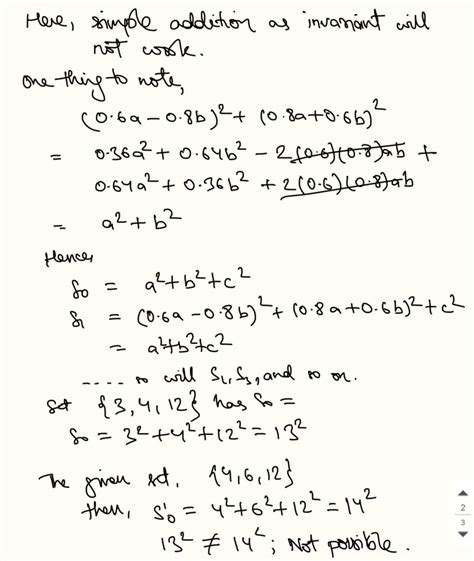 Here, simple addition as invariant will
not work.
One thing to note,
(0.6a - 0.8b)² + (0.8a + 0.6b)²
= 0.36a² + 0.64b² - 2(0.6)(0.8)ab +
0.64a² + 0.36b² + 2(0.6)(0.8)ab
= a² + b²
Hence,
S₀ = a² + b² + c²
S₁ = (0.6a - 0.8b)² + (0.8a + 0.6b)² + c²
= a² + b² + c²
.... so will S₂, S₃, and so on.
Set {3, 4, 12} has S₀ =
S₀ = 3² + 4² + 12² = 13²
The given set, {4, 6, 12}
then, S₀' = 4² + 6² + 12² = 14²
13² ≠ 14²; Not possible.
2
3